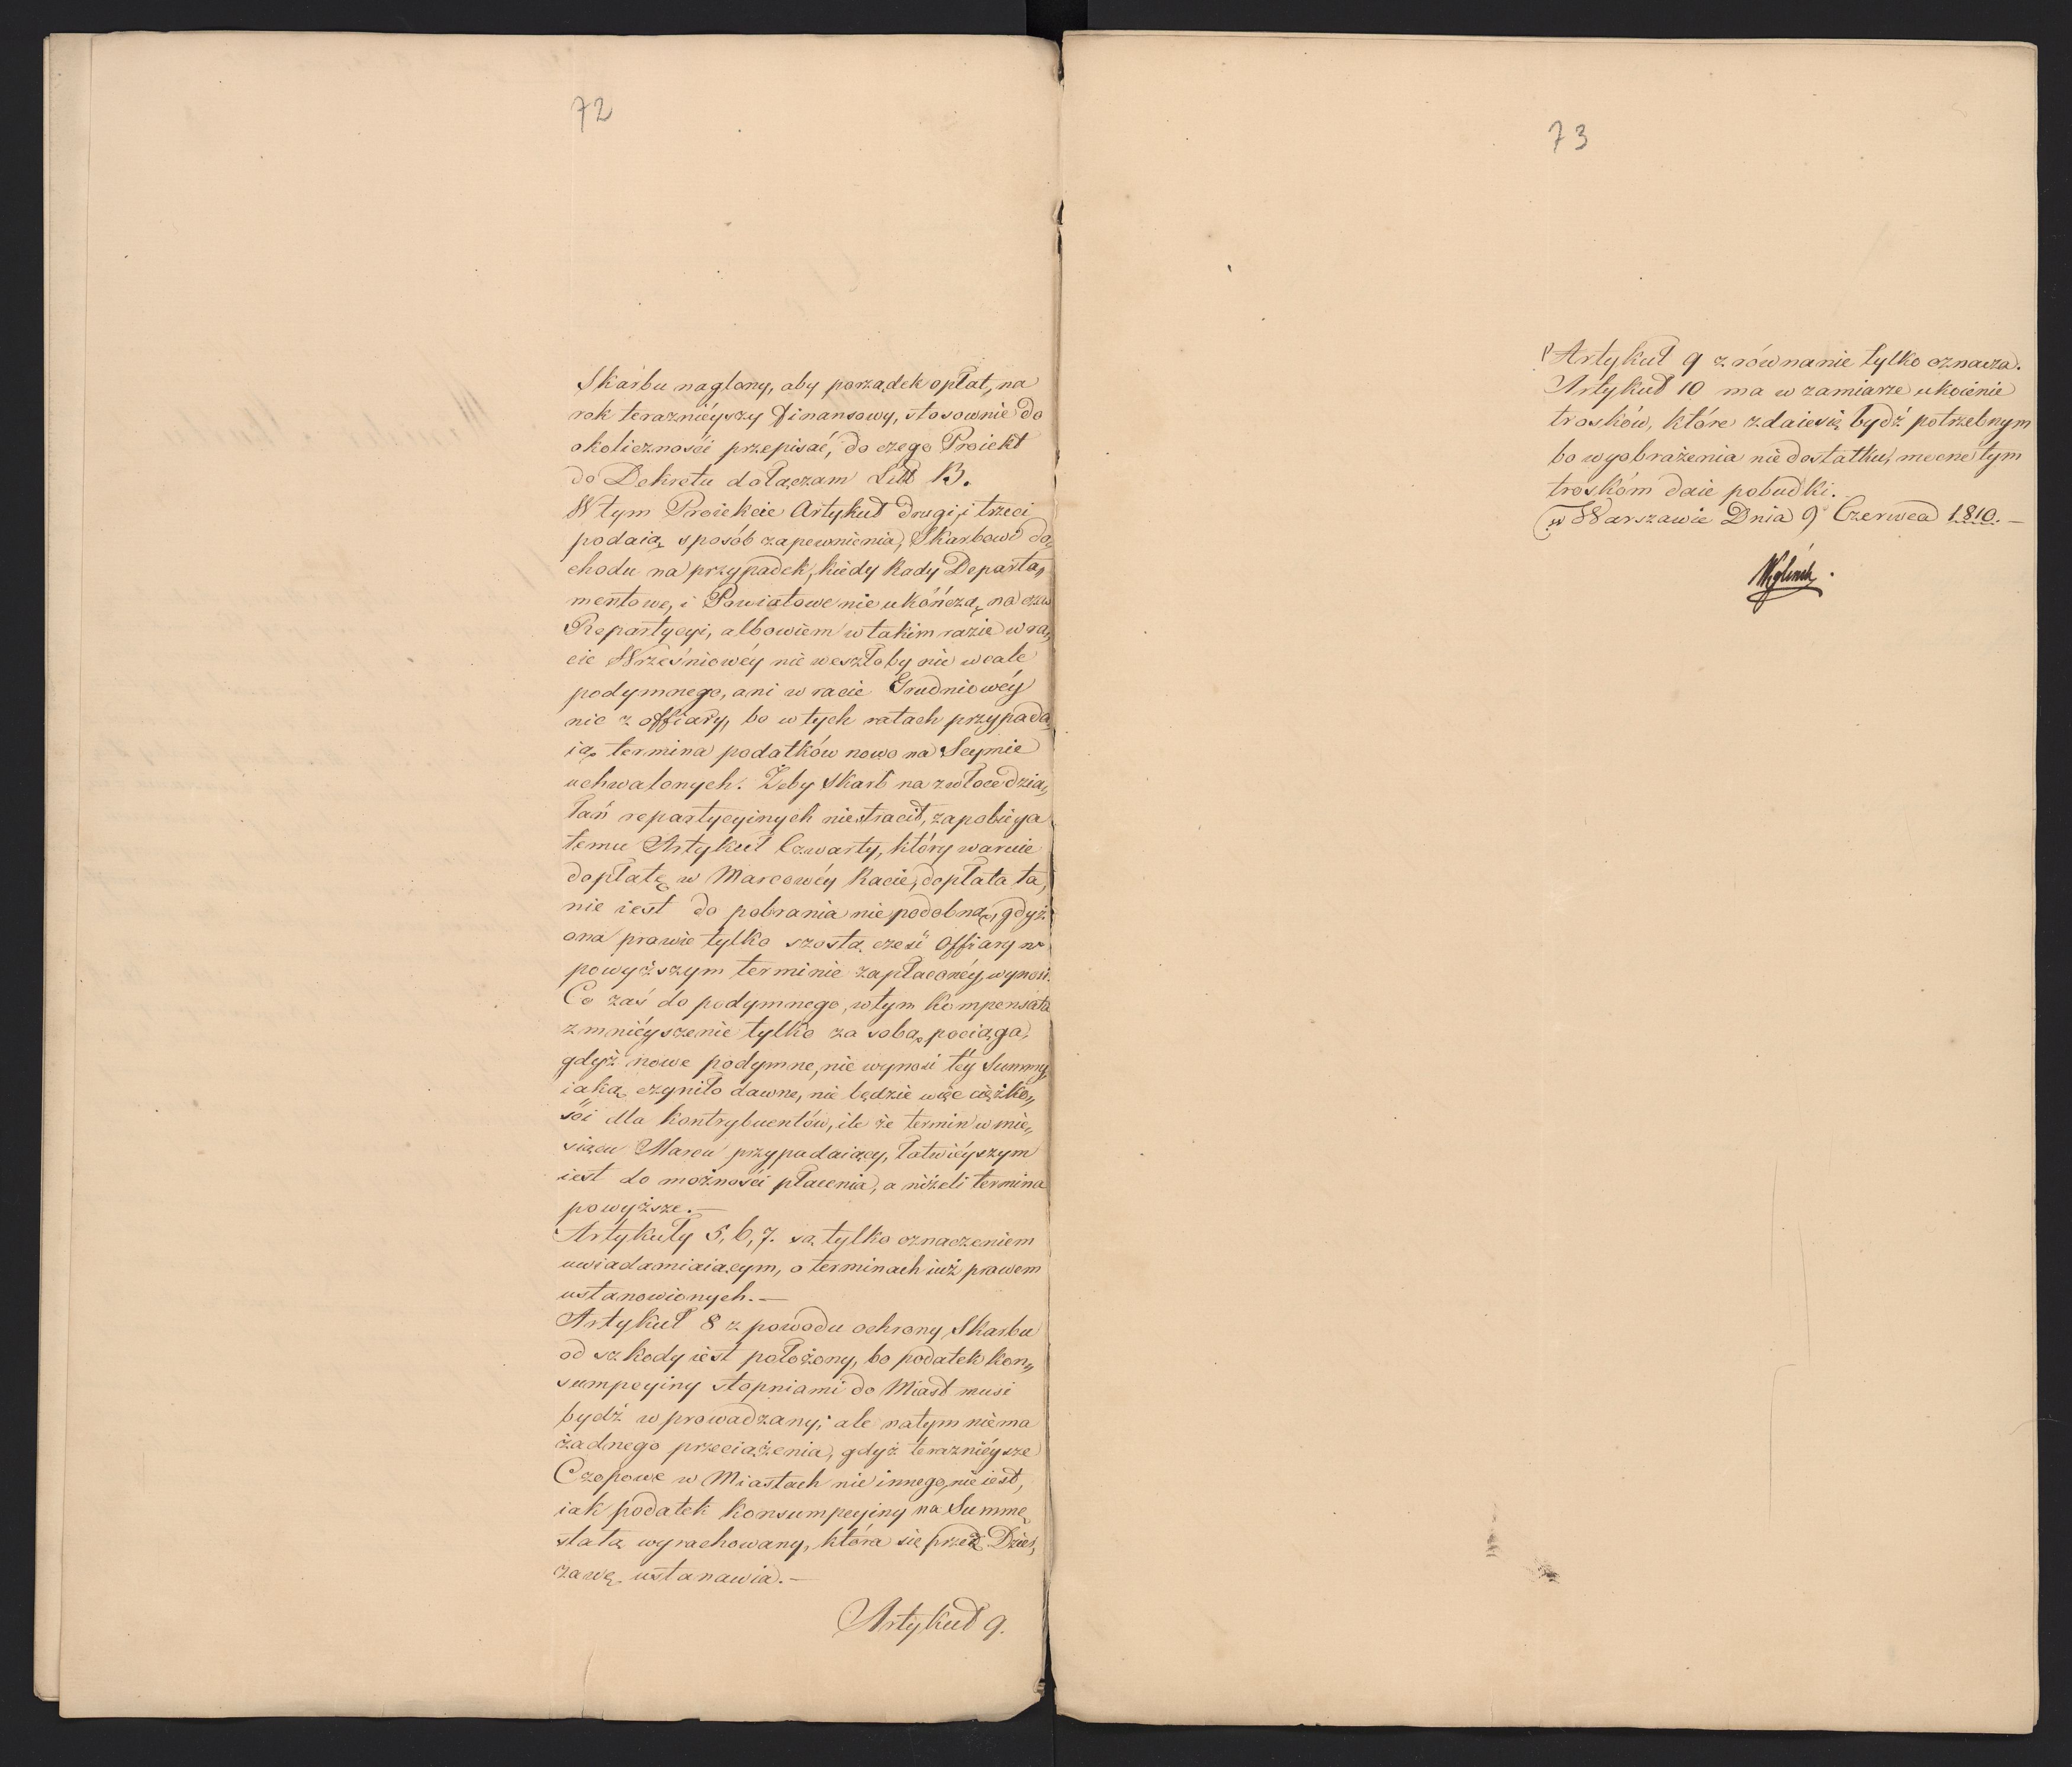 72
Skarbu naglony, aby porządek opłat, na
rok teraznieyszy Finansowy, stosownie do
okolicznosci przepisać, do czego Proiekt
do Dekretu dołączam Litt B.
W tym Proiekcie Artykuł drugi, i trzeci
podaią sposób zapewnienia, Skarbowi do„
chodu na przypadek, kiedy Rady Departa„
mentowe, i Powiatowe nie ukończą na czas
Repartycyi, albowiem w takim razie w ra„
cie Wrześniowéy nie weszłoby nic wcale
podymnego, ani w racie Grudniowéy
nic z offiary, bo w tych ratach przypada„
ią termina podatków nowo na Seymie
uchwalonych. Żeby Skarb na zwłoce dzia„
łań repartycyinych niestracił, zapobiega
temu Artykuł Czwarty, który waruie
dopłatę w Marcowéy Racie, dopłata ta,
nie iest do pobrania niepodobną, gdyż
ona prawie tylko szostą cześć Offiary w
powyższym terminie zapłaconéy, wynosi.
Co zaś do podymnego, w tym kompensata
zmniéyszenie tylko za sobą pociąga,
gdyż nowe podymne, nie wynosi téy Summy,
iaką czyniło dawne, nie będzie więc ciężko„
ści dla Kontrybuentów, ile że termin w mie„
siącu Marcu przypadaiący, łatwiéyszym
iest do możności płacenia, a niżeli termina
powyższe. —
Artykuły 5, 6, 7. są tylko oznaczeniem
uwiadamiaiącym, o terminach iuż prawem
ustanowionych. —
Artykuł 8 z powodu ochrony Skarbu
od szkody iest położony, bo podatek kon„
sumpcyiny stopniami do Miast musi
bydź wprowadzany; ale natym niema
żadnego przeciążenia, gdyż teraznieysze
Czopowe w Miastach nic innego nie iest,
iak podatek konsumpcyiny na Summę
stałą wyrachowany, która się przez Dzier„
żawę ustanawia. —
Artykuł 9.
73
Artykuł 9 zrównanie tylko oznacza.
Artykuł 10 ma w zamiarze ukoienie
trosków, które zdaiesię bydź potrzebnym
bo wyobrażenia niedostatku, mocne tym
troskóm daie pobudki.
w Warszawie Dnia 9 Czerwca 1810. —
Węgleński.